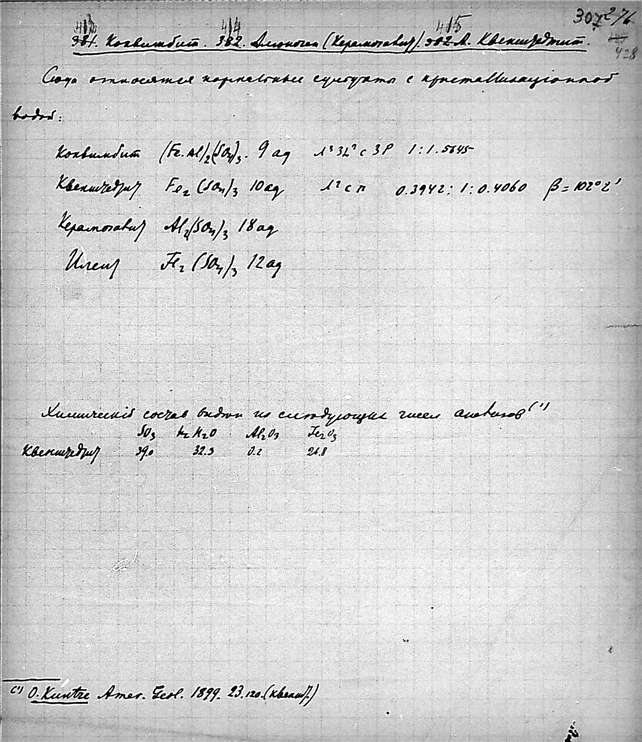 307 276
413 414 415 428
381. Коквимбит. 382. Алюноген (Керамогалит). 382.А. Квенштедтит.
Сюда относятся нормальные сульфаты с кристаллизаціонной
водой:
Коквимбит (Fe.Al)₂(SO₄)₃. 9 aq Λ³3L²c3P 1:1.5645
Квенштедтит Fe₂(SO₄)₃ 10 aq Λ²cп 0.3942:1:0.4060 β=102°2'
Керамогалит Al₂(SO₄)₃ 18 aq
Илезит Fe₂(SO₄)₃ 12 aq
Химическій состав виден из следующих чисел анализов (¹)
SO₃ H₂O Al₂O₃ Fe₂O₃
Квенштедтит 39.0 32.3 0.2 26.8
(¹) O. Kuntze Amer. Geol. 1899. 23. 120. (квеншт.)